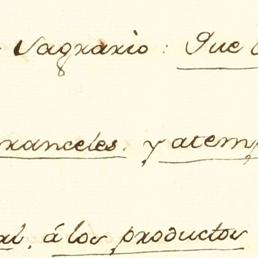 Sagrario: Que
aranceles y atemp
al, á los productos